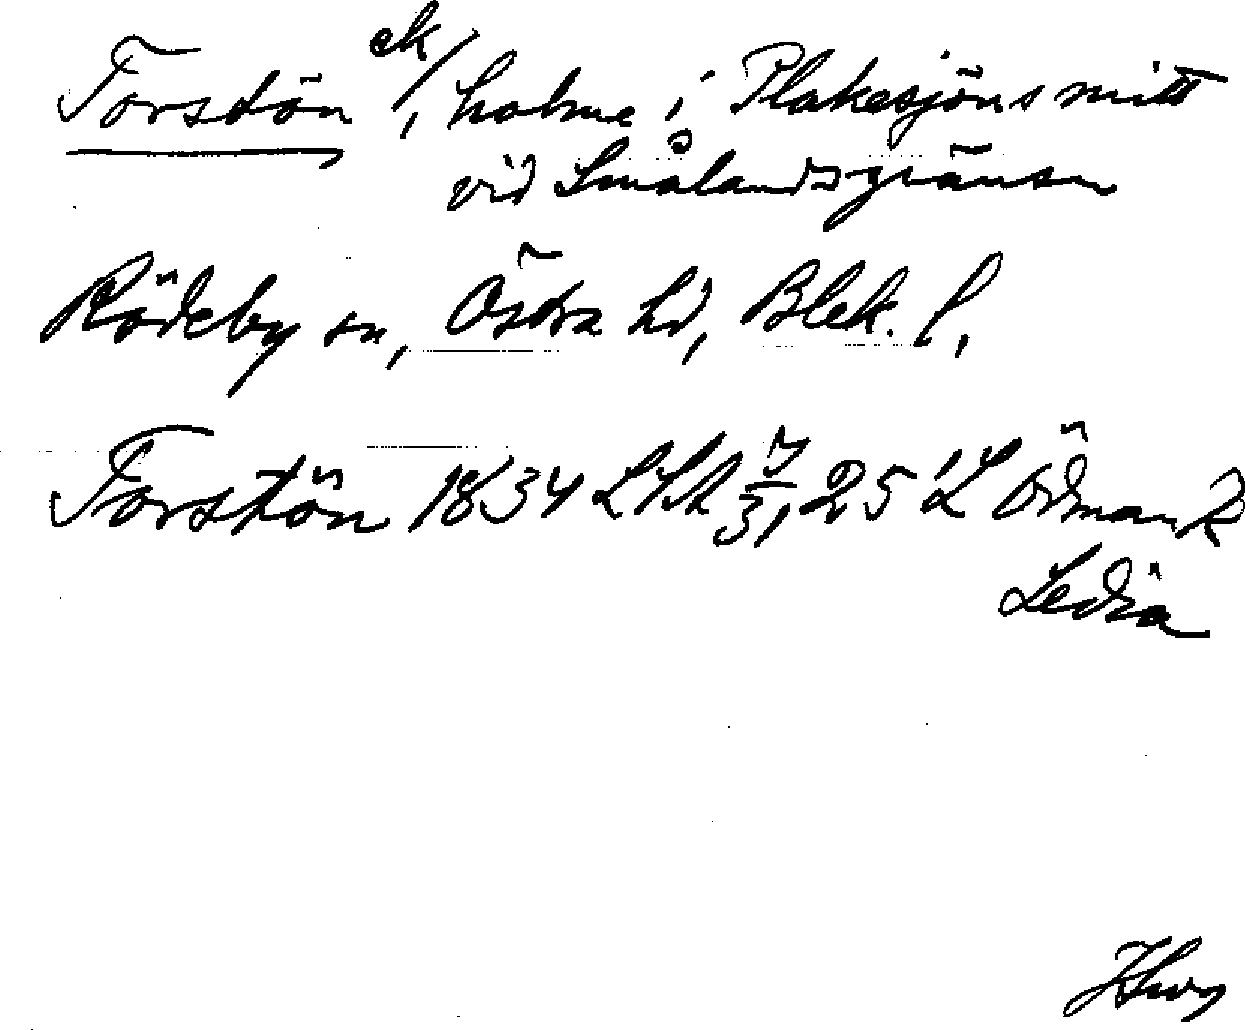 Torstön ek/, holme i Plakesjöns mitt
vid Smålandsgränsen
Rödeby sn, Östra hd, Blek. l,
Torstön 1834 LSA 7/31, 25 L Ödmark
Ledja